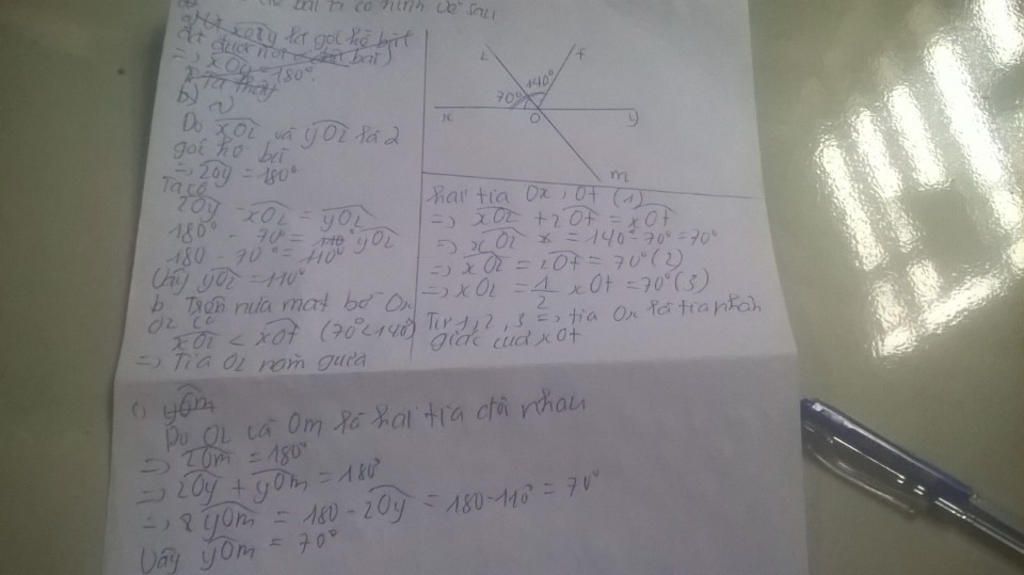 bài ta có hình vẽ sau
a)
xOy là góc bẹt
=> xOy = 180°
Ta thấy
b)
a)
Do xOz và yOz là 2
góc kề bù
=> zOy = 180°
Ta có
zOy - xOz = yOz
180° - 70° = 110° yOz
180 - 70° = 110°
Vậy yOz = 110°
b. Trên nửa mặt bờ Ox
Oz có
xOz < xOt (70° < 140°)
=> Tia Oz nằm giữa
z
t
140°
70°
x
O
y
m
hai tia Ox, Ot (1)
=> xOz + zOt = xOt
=> xOz = 140° - 70° = 70°
=> xOz = zOt = 70° (2)
=> xOz = 1/2 xOt = 70° (3)
Từ 1, 2, 3 => tia Ox là tia phân
giác của xOt
c) yOm
Do Oz và Om là hai tia đối nhau
=> zOm = 180°
=> zOy + yOm = 180°
=> yOm = 180 - zOy = 180 - 110° = 70°
Vậy yOm = 70°